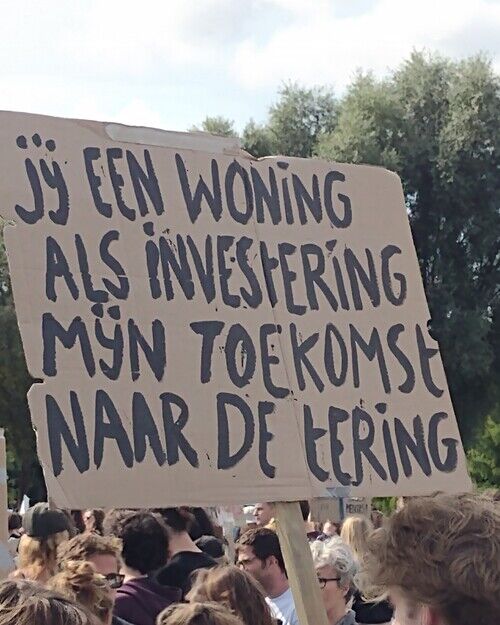 JIJ EEN WONING
ALS INVESTERING
MIJN TOEKOMST
NAAR DE TERING